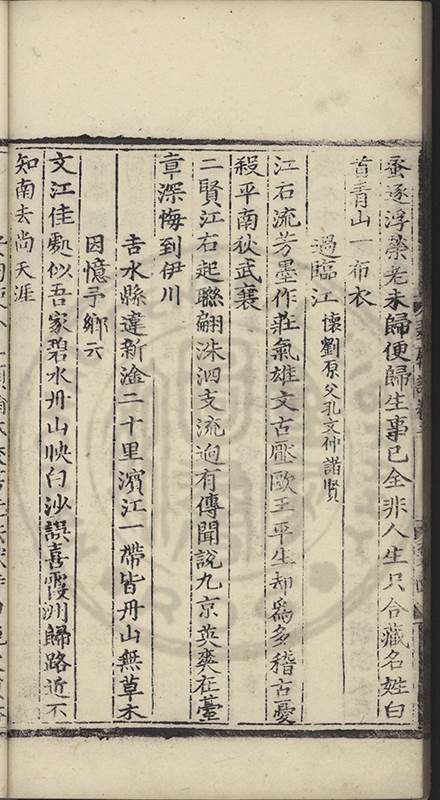 蚤逐浮榮老未歸便歸生事已全非人生只合藏名姓白
首青山一布衣
過臨江懷劉原父孔文仲諸賢
江右流芳墨作莊氣雄文古壓歐王平生却為多稽古憂
殺平南狄武襄
二賢江右起聯翩洙泗支流逈有傳聞說九京英爽在臺
章深悔到伊川
吉水縣違新淦二十里濱江一帶皆丹山無草木
因憶予鄉云
文江佳處似吾家碧水丹山映白沙誤喜霞洲歸路近不
知南去尚天涯